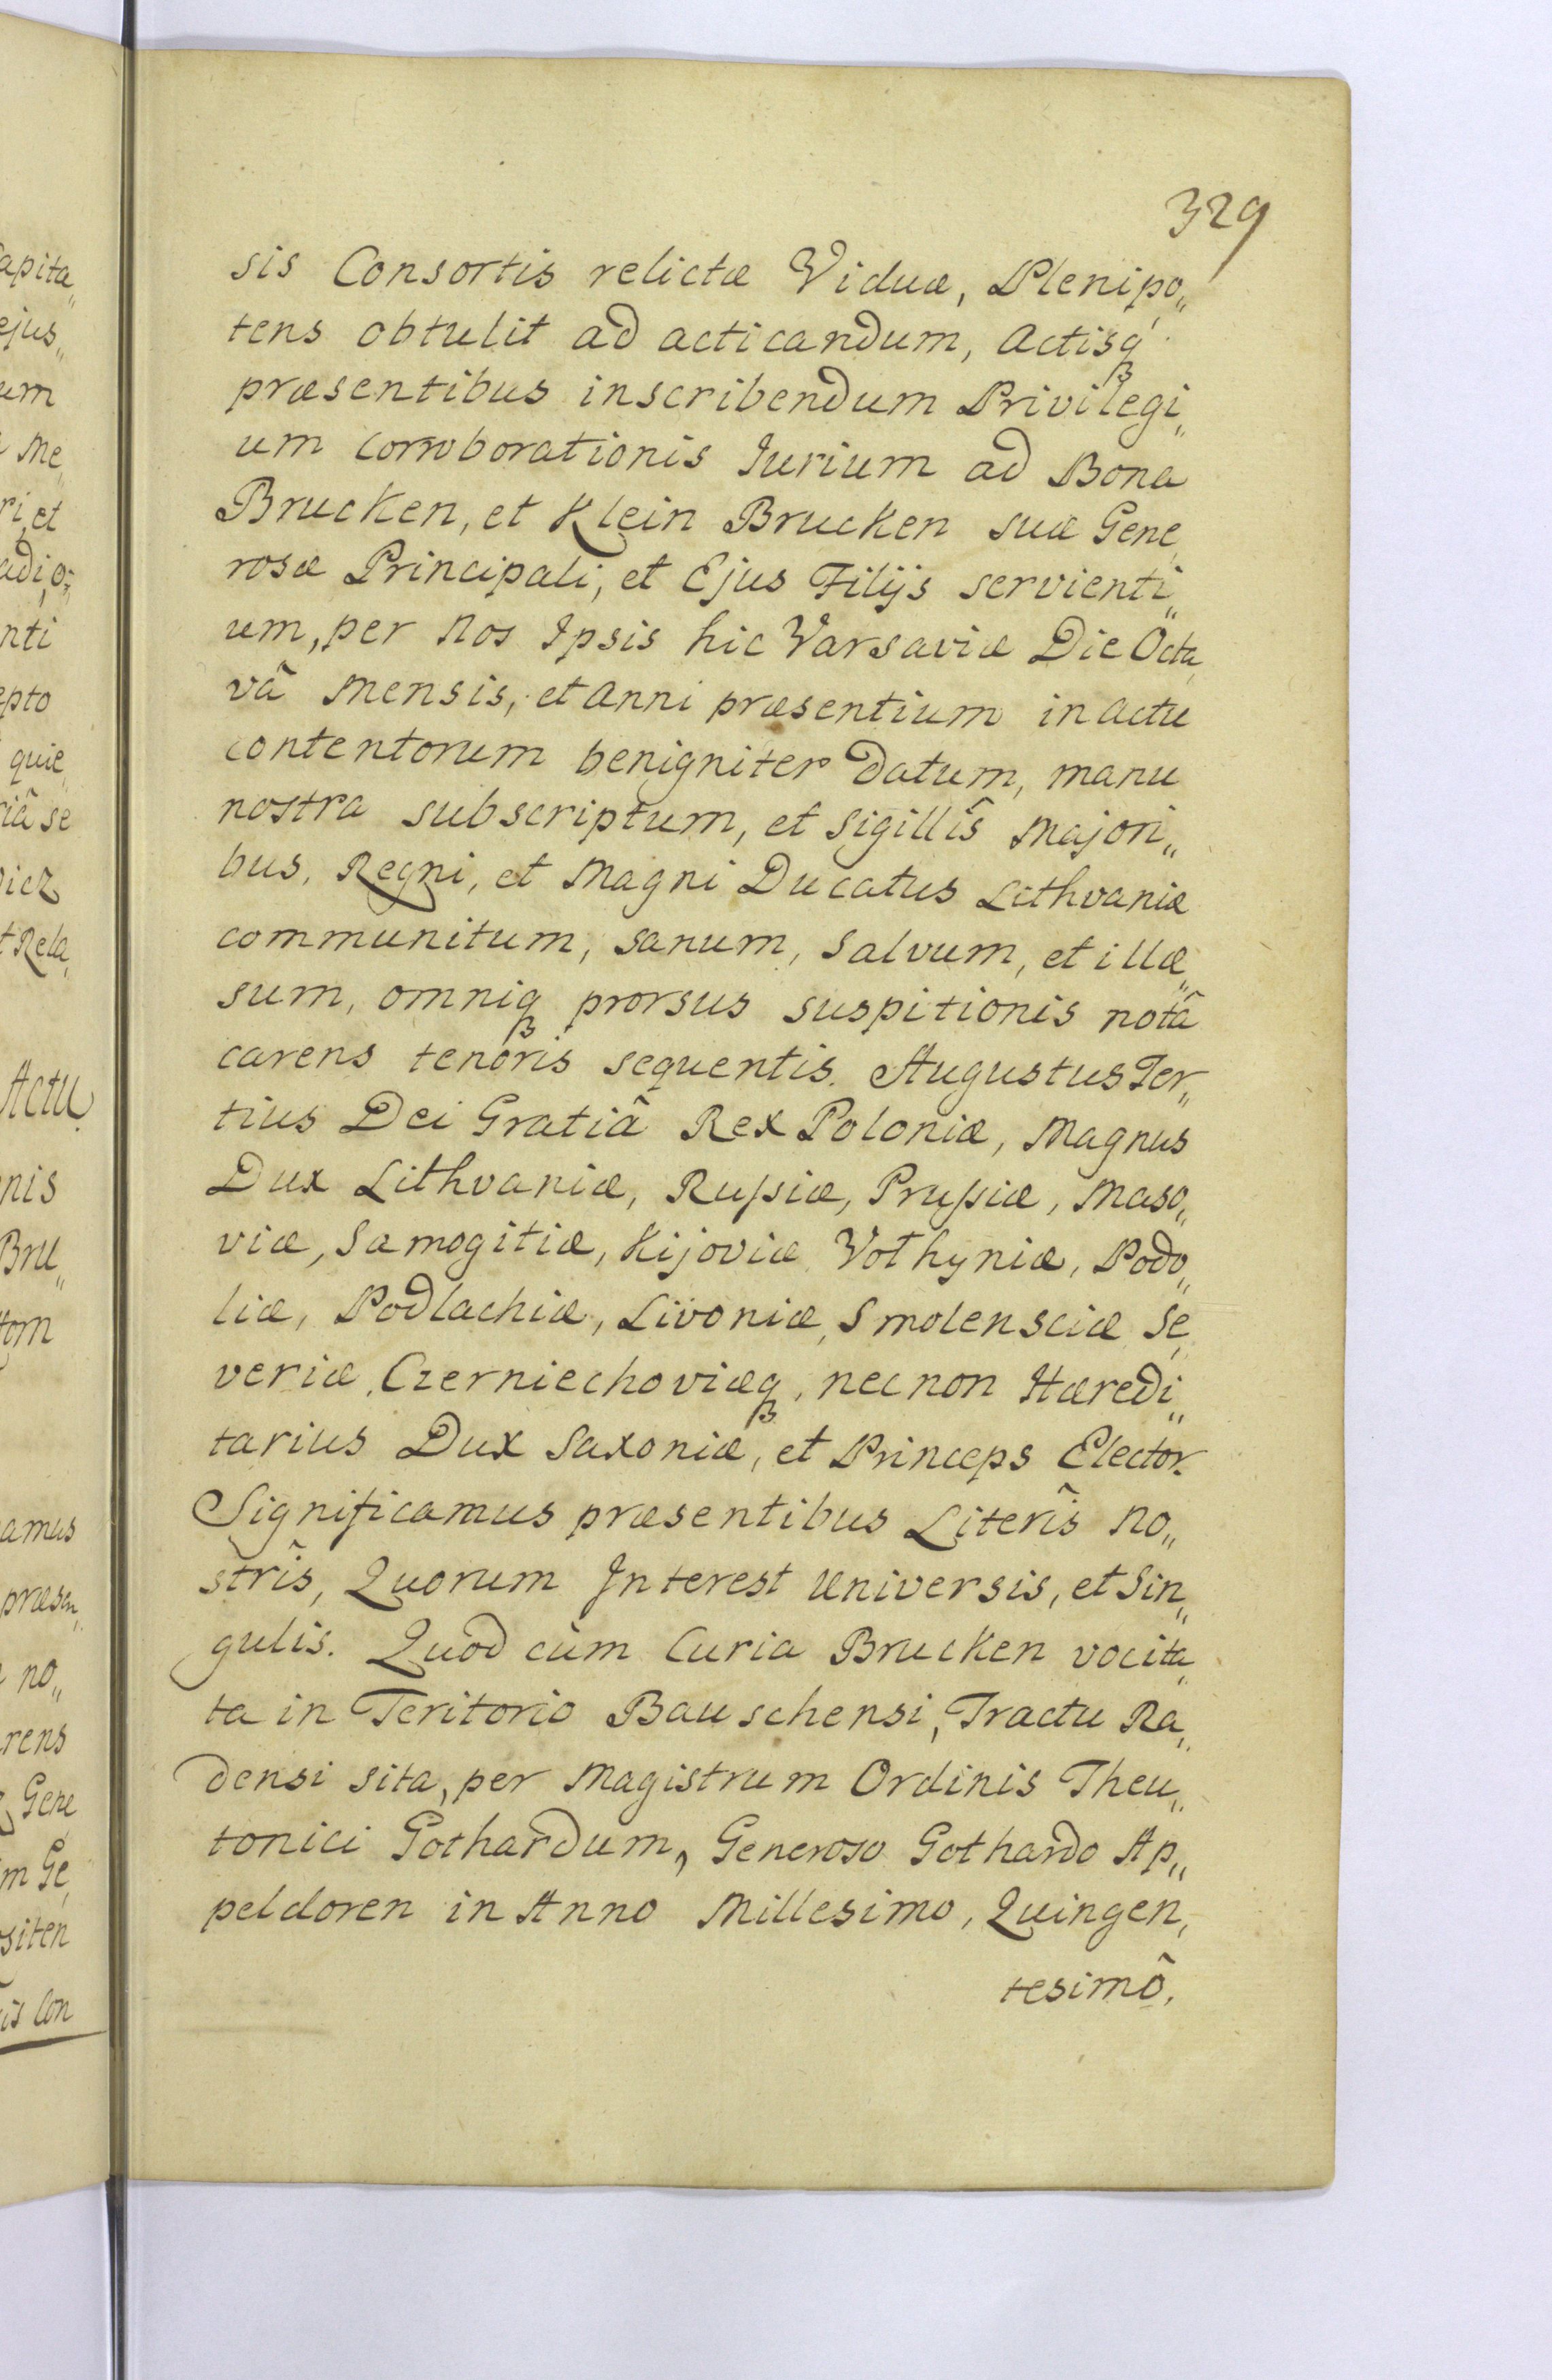 329
sis Consortis relictæ Viduæ, Plenipo„
tens obtulit ad acticandum, Actisq́ꝫ
præsentibus inscribendum Privilegi„
um corroborationis Jurium ad Bona
Brucken, et Klein Brucken suæ Gene„
rosæ Principali, et Ejus Filijs servienti„
um, per Nos Ipsis hic Varsaviæ Die Octa„
vâ Mensis, et Anni præsentium in actu
contentorum benigniter datum, manu
nostra subscriptum, et Sigillîs Majori„
bus, Regni, et Magni Ducatus Lithvaniæ
communitum, sanum, salvum, et illæ„
sum, omniqꝫ prorsus suspitionis notâ
carens tenoris sequentis. Augustus Ter„
tius Dei Gratiâ Rex Poloniæ, Magnus
Dux Lithvaniæ, Rußiæ, Prußiæ, Maso„
viæ, Samogitiæ, Kijoviæ, Volhyniæ, Podo„
liæ, Podlachiæ, Livoniæ, Smolensciæ, Se„
veriæ, Czerniechoviæqꝫ, necnon Hæredi„
tarius Dux Saxoniæ, et Princeps Elector.
Significamus præsentibus Literîs no„
strîs, Quorum Interest Universis, et Sin„
gulis. Quod cùm Curia Brucken vocita„
ta in Teritorio Bauschensi, Tractu Ra„
densi sita, per Magistrum Ordinis Theu„
tonici Gothardum, Generoso Gothardo Ap„
peldoren in Anno Millesimo, Quingen„
tesimô,
apita„
ejus„
um
Me„
ri, et
nti
epto
quie„
riâ se
t Rela„
Actu
nis
Bru„
tom
amus
præsen„
no„
rens
Gene
m Ge„
siten
is Con